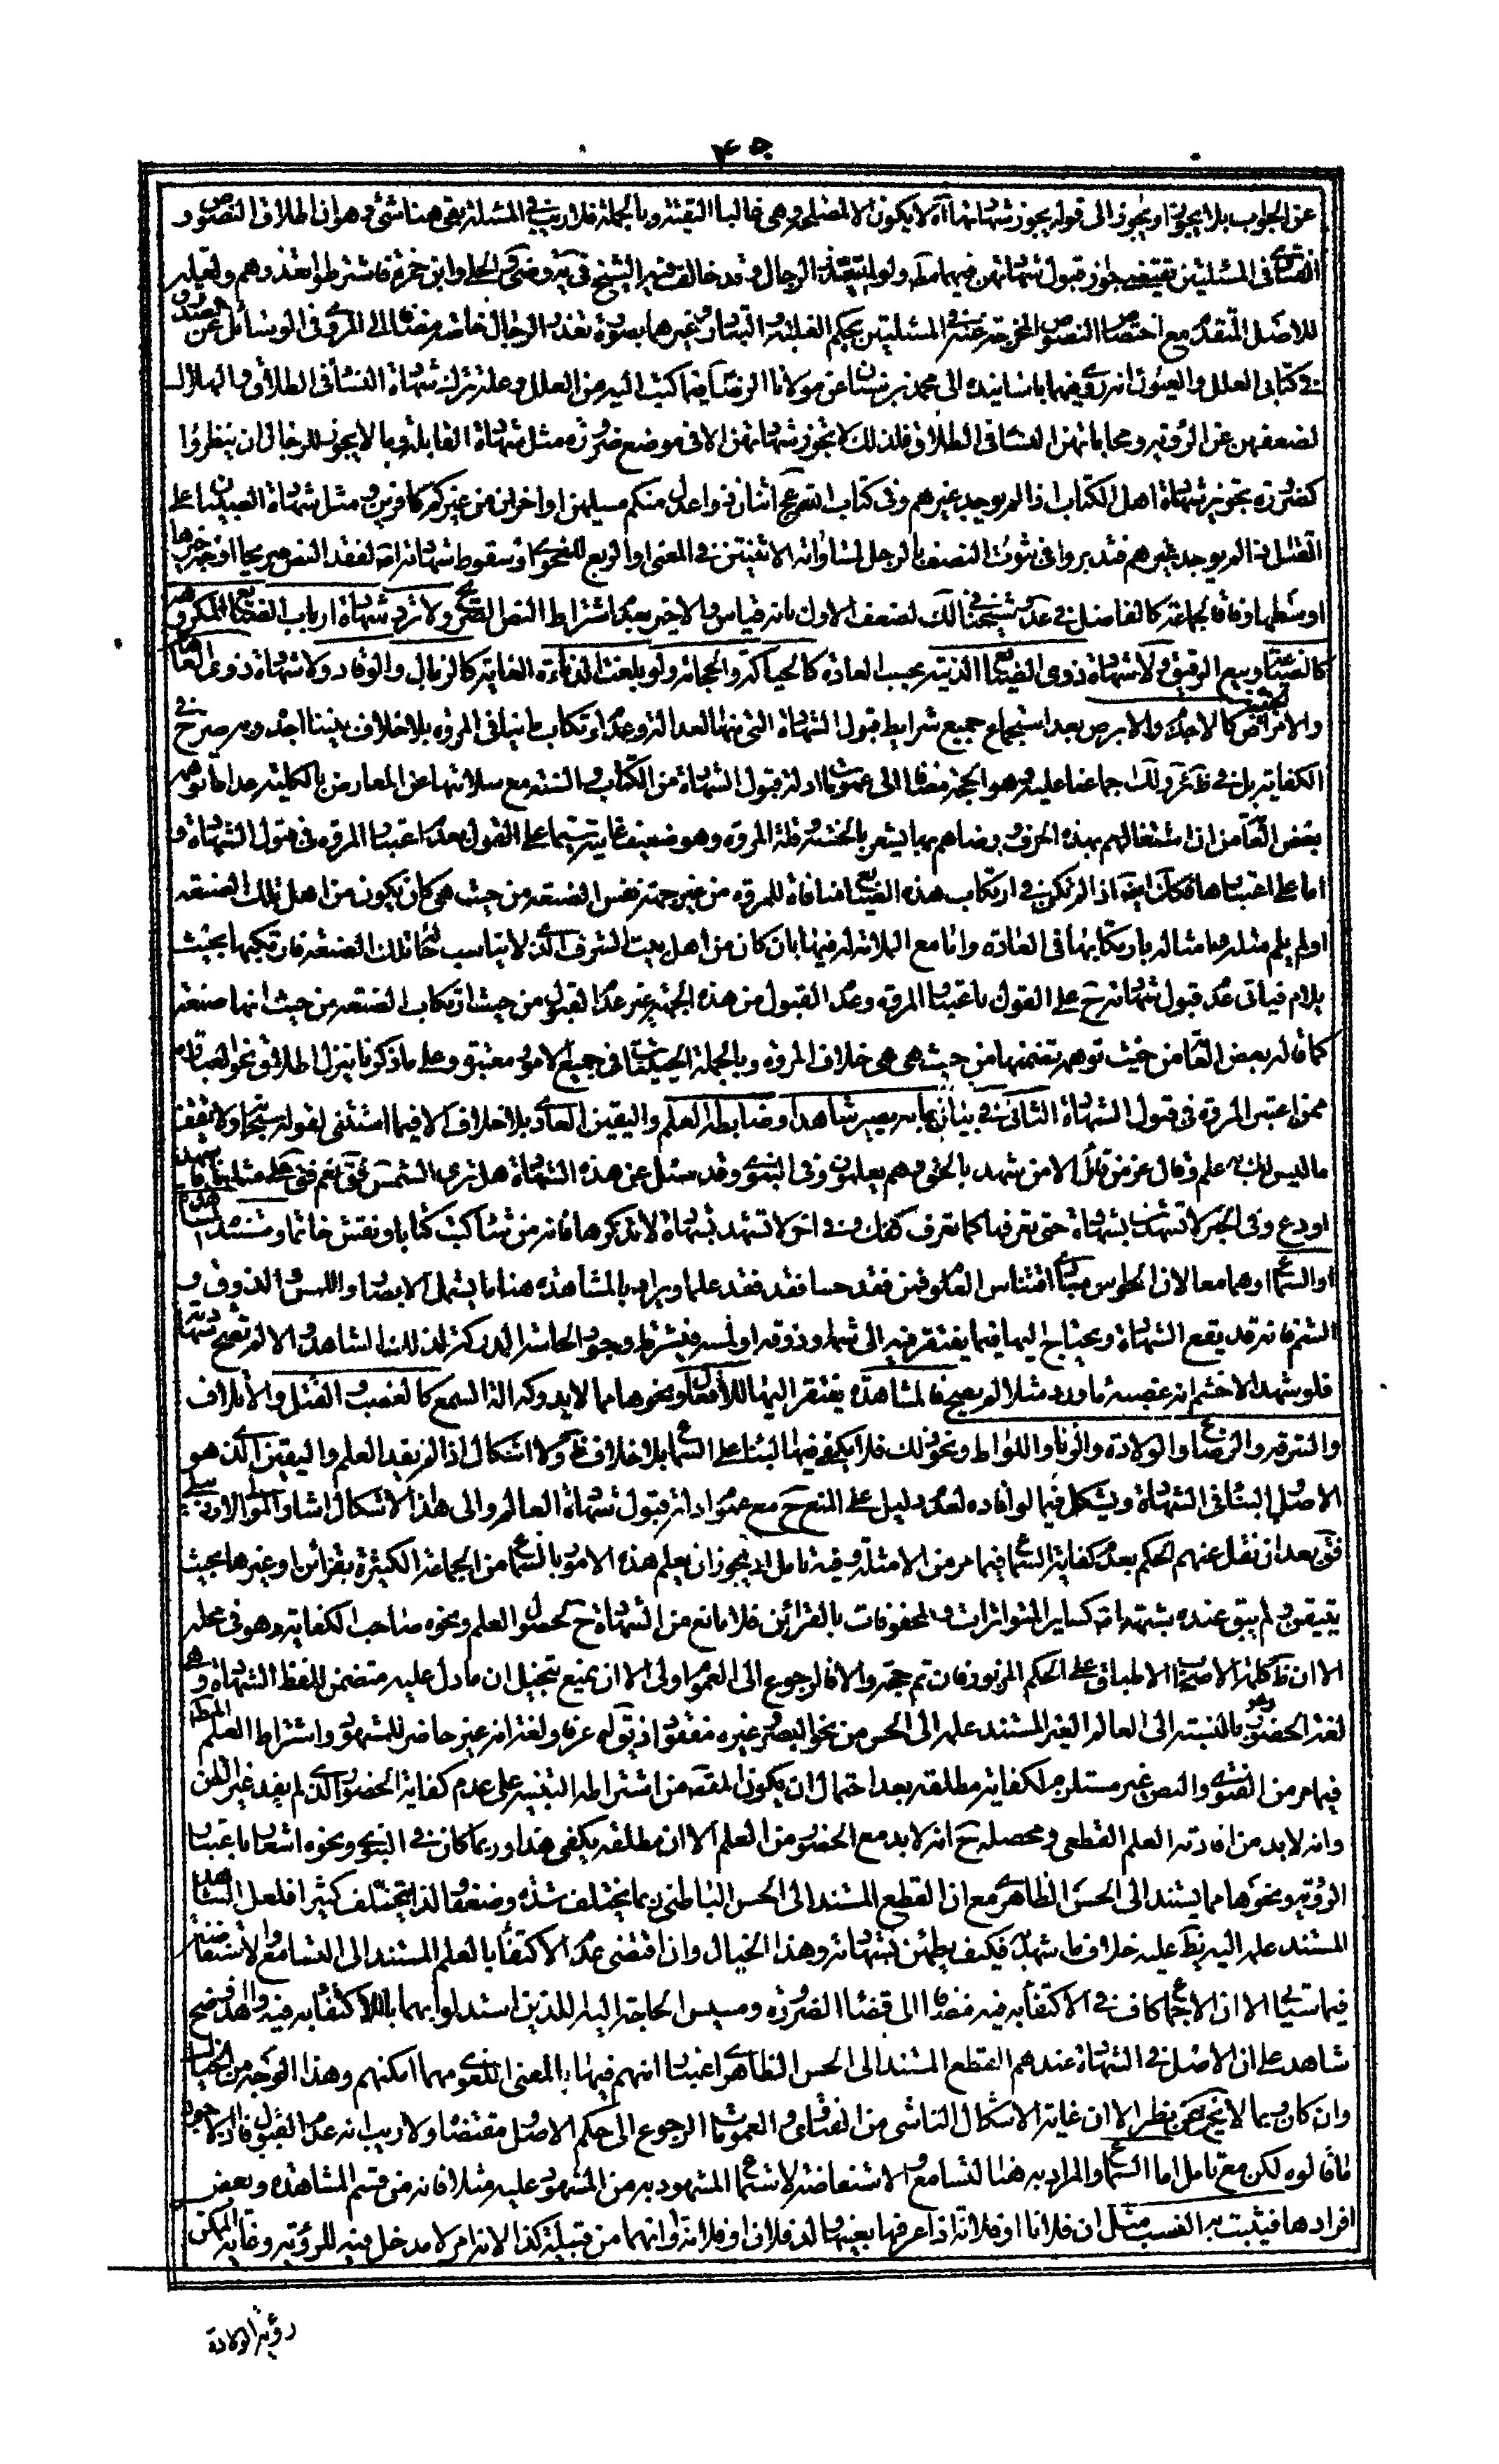 عن الجواب بلا يجوز او يجوز الى قوله يجوز شهادتها آه لا يكون الا لمصلحة وهى غالبا التقية وبالجملة فلا ريب فى المسئلة بقى هنا شئ وهو ان اطلاق النصوص و
الفتاوى فى المسئلتين يقتضى جواز قبول شهادتهن فيهما مط ولو لم يتعذر الرجال وقد خالف فيه الشيخ فى يه وضى والحلى وابن حمزة فاشترطوا تعذرهم ولعله
للاصل المتقدم مع اختصاص النصوص المخرجة عنه فى المسئلتين بحكم الغلبة والتبادر وغيرهما بصورة تعذر الرجال خاصة مضافا الى المروى فى الوسائل عن الصدوق
فى كتابى العلل والعيون انه روى فيهما باسانيده الى محمد بن سنان عن مولانا الرضا فيما كتب اليه من العلل وعلة ترك شهادة النساء فى الطلاق والهلال
لضعفهن عن الرؤية ومحاباتهن النساء فى الطلاق فلذلك لا يجوز شهادتهن الا فى موضع ضرورة مثل شهادة القابلة وما لا يجوز للرجال ان ينظروا
كضرورة تجويز شهادة اهل الكتاب اذا لم يوجد غيرهم وفى كتاب الله عج اثنان ذوا عدل منكم مسلمين او اخران من غيركم كافرين ومثل شهادة الصبيان على
القتل اذا لم يوجد غيرهم فتدبر وفى ثبوت النصف بالرجل لمساواته الاثنتين فى المعنى او الربع للفحوى او سقوط شهادته اصلا لفقد النص صريحا اوجه خيرها
اوسطها وفاقا لجماعة كالفاضل فى عد وشيخنا فى لك لضعف الاول بانه قياس والاخير بعدم اشتراط النص الصريح ولا ترد شهادة ارباب الصنايع المكروهة
كالصياغة وبيع الرقيق ولا شهادة ذوى الصنايع الدنية بحسب العادة كالحياكة والحجامة ولو بلغت الدناءة الغاية كالزبال والوقاد ولا شهادة ذوى العاهات
والامراض الخبيثة كالاجذم والابرص بعد استجماع جميع شرايط قبول الشهادة التى منها العدالة وعدم ارتكاب ما ينافى المروة بلا خلاف بيننا اجده وبه صرح فى
الكفاية بل فى ظاهر لك اجماعنا عليه وهو الحجة مضافا الى عمومات ادلة قبول الشهادة من الكتاب والسنة مع سلامتها عن المعارض بالكلية عدا ما توهمه
بعض العامة من ان اشتغالهم بهذه الحرف ورضاهم بها يشعر بالخسة وقلة المروة وهو ضعيف غايته سيما على القول بعدم اعتبار المروة فى قبول الشهادة و
اما على اعتبارها فكك ايضا اذا لم يكن فى ارتكاب هذه الصنايع منافاة للمروة من غير جهة نفس الصنعة من حيث هى كان يكون من اهل تلك الصنعة
او لم يلم مثله وامثاله بارتكابها فى العادة واما مع الملامة له فيها بان كان من اهل بيت الشرف الذى لا يناسب لحاله تلك الصنعة فارتكبها بحيث
يلام فياتى عدم قبول شهادته ح على القول باعتبار المروة وعدم القبول من هذه الجهة غير عدم القبول من حيث ارتكاب الصنعة من حيث انها صنعة
كما قاله بعض العامة من حيث توهم تضمنها من حيث هى هى خلاف المروة وبالجملة الحيثيات فى جميع الامور معتبرة وعلى ما ذكرنا ينزل اطلاق نحو العبارة
ممن اعتبر المروة فى قبول الشهادة الثانى فى بيان ما به يصير شاهدا وضابطه العلم واليقين العادى بلا خلاف الا فيما استثنى لقوله سبحانه ولا تقف
ما ليس لك به علم وقال عز من قائل الا من شهد بالحق وهم يعلمون وفى النبوى وقد سئل عن هذه الشهادة هل ترى الشمس فق نعم فق على مثلها فاشهد
او دع وفى الخبر لا تشهدن بشهادة حتى تعرفها كما تعرف كفك وفى اخر لا تشهد بشهادة لا تذكرها فانه من شاء كتب كتابا ونقش خاتما ومستندها المشاهدة
او السماع او هما معا لان الحواس مبادى اقتناص العلوم فمن فقد حسا فقد فقد علما ويراد بالمشاهدة هنا ما يشمل الابصار واللمس والذوق و
الشم فانه قد يقع الشهادة ويحتاج اليها فيما يفتقر فيه الى شمه او ذوقه او لمسه فيشترط وجود الحاسة المدركة لذلك للشاهد والا لم تصح شهادته
فلو شهد الاخشم انه غصبه ماورد مثلا لم يصح فالمشاهدة يفتقر اليها للافعال ونحوها مما لا يدركه الة السمع كالغصب والقتل والاتلاف
والسرقة والرضاع والولادة والزنا واللواط ونحو ذلك فلا يكفى فيها البناء على السماع بلا خلاف ظ ولا اشكال اذا لم يفد العلم واليقين الذى هو
الاصل والبناء فى الشهادة ويشكل فيما لو افاده لعدم دليل على المنع ح مع عموم ادلة قبول شهادة العالم والى هذا الاشكال اشار المولى الاردبيلى
فق بعد ان نقل عنهم الحكم بعدم كفاية السماع فيما مر من الامثلة وفيه تامل اذ يجوز ان يعلم هذه الامور بالسماع من الجماعة الكثيرة بقرائن او غيرها بحيث
يتيقن ولم يبق عنده شبهة اصلا كساير المتواترات والمحفوفات بالقرائن فلا مانع من الشهادة ح لحصول العلم ونحوه صاحب الكفاية وهو فى محله
الا ان ظ كلمة الاصحاب الاطباق على الحكم المزبور فان تم حجة والا فالرجوع الى العموم اولى الا ان يمنع بتخيل ان ما دل عليه متضمن للفظ الشهادة وهى
لغة الحضور وهو بالنسبة الى العالم الغير المستند علمه الى الحس من نحو البصر وغيره مفقود اذ يقال عرفا ولغة انه غير حاضر للمشهود واشتراط العلم المطلق
فيما مر من الفتوى والنص غير مستلزم لكفاية مطلقه بعد احتمال ان يكون المقصود من اشتراطه التنبيه على عدم كفاية الحضور الذى لم يفد غير الظن
وانه لا بد من افادته العلم القطعى ومحصله ح انه لا بد مع الحضور من العلم لا ان مطلقه يكفى هذا وربما كان فى النبوى ونحوه اشعار باعتبار
الرؤية ونحوها مما يستند الى الحس الظاهرى مع ان القطع المستند الى الحس الباطنى ربما يختلف شدة وضعفا ولذا يتخلف كثيرا فلعل الشاهد
المستند علمه اليه يظهر عليه خلاف ما شهد به فكيف يطمئن بشهادته وهذا الخيال وان اقتضى عدم الاكتفاء بالعلم المستند الى التسامع والاستفاضة
فيما سياتى الا ان الاجماع كاف فى الاكتفاء به فيه مضافا الى قضاء الضرورة ومسيس الحاجة اليه اللذين استدلوا بهما للاكتفاء به فيه واضح
شاهد على ان الاصل فى الشهادة عندهم القطع المستند الى الحس الظاهرى اعتبارا منهم فيها المعنى اللغوى مهما امكنهم وهذا الوجه من الخيال
وان كان ربما لا يخلو عن نظر الا ان غاية الاشكال الناشى من الفتاوى والعمومات الرجوع الى حكم الاصل ومقتضاه ولا ريب انه عدم القبول فالاجود
ما قالوه لكن مع تامل اما السماع والمراد به هنا التسامع والاستفاضة لا سماع المشهود به من المشهود عليه مثلا فانه من قسم المشاهدة وبعض
افرادها فيثبت به النسب مثل ان فلانا او فلانة اذا عرفها بعينها ولد فلان او فلانة او انهما من قبيلة كذا لانه امر لا مدخل فيه للرؤية وغاية الممكن
رؤية الولادة